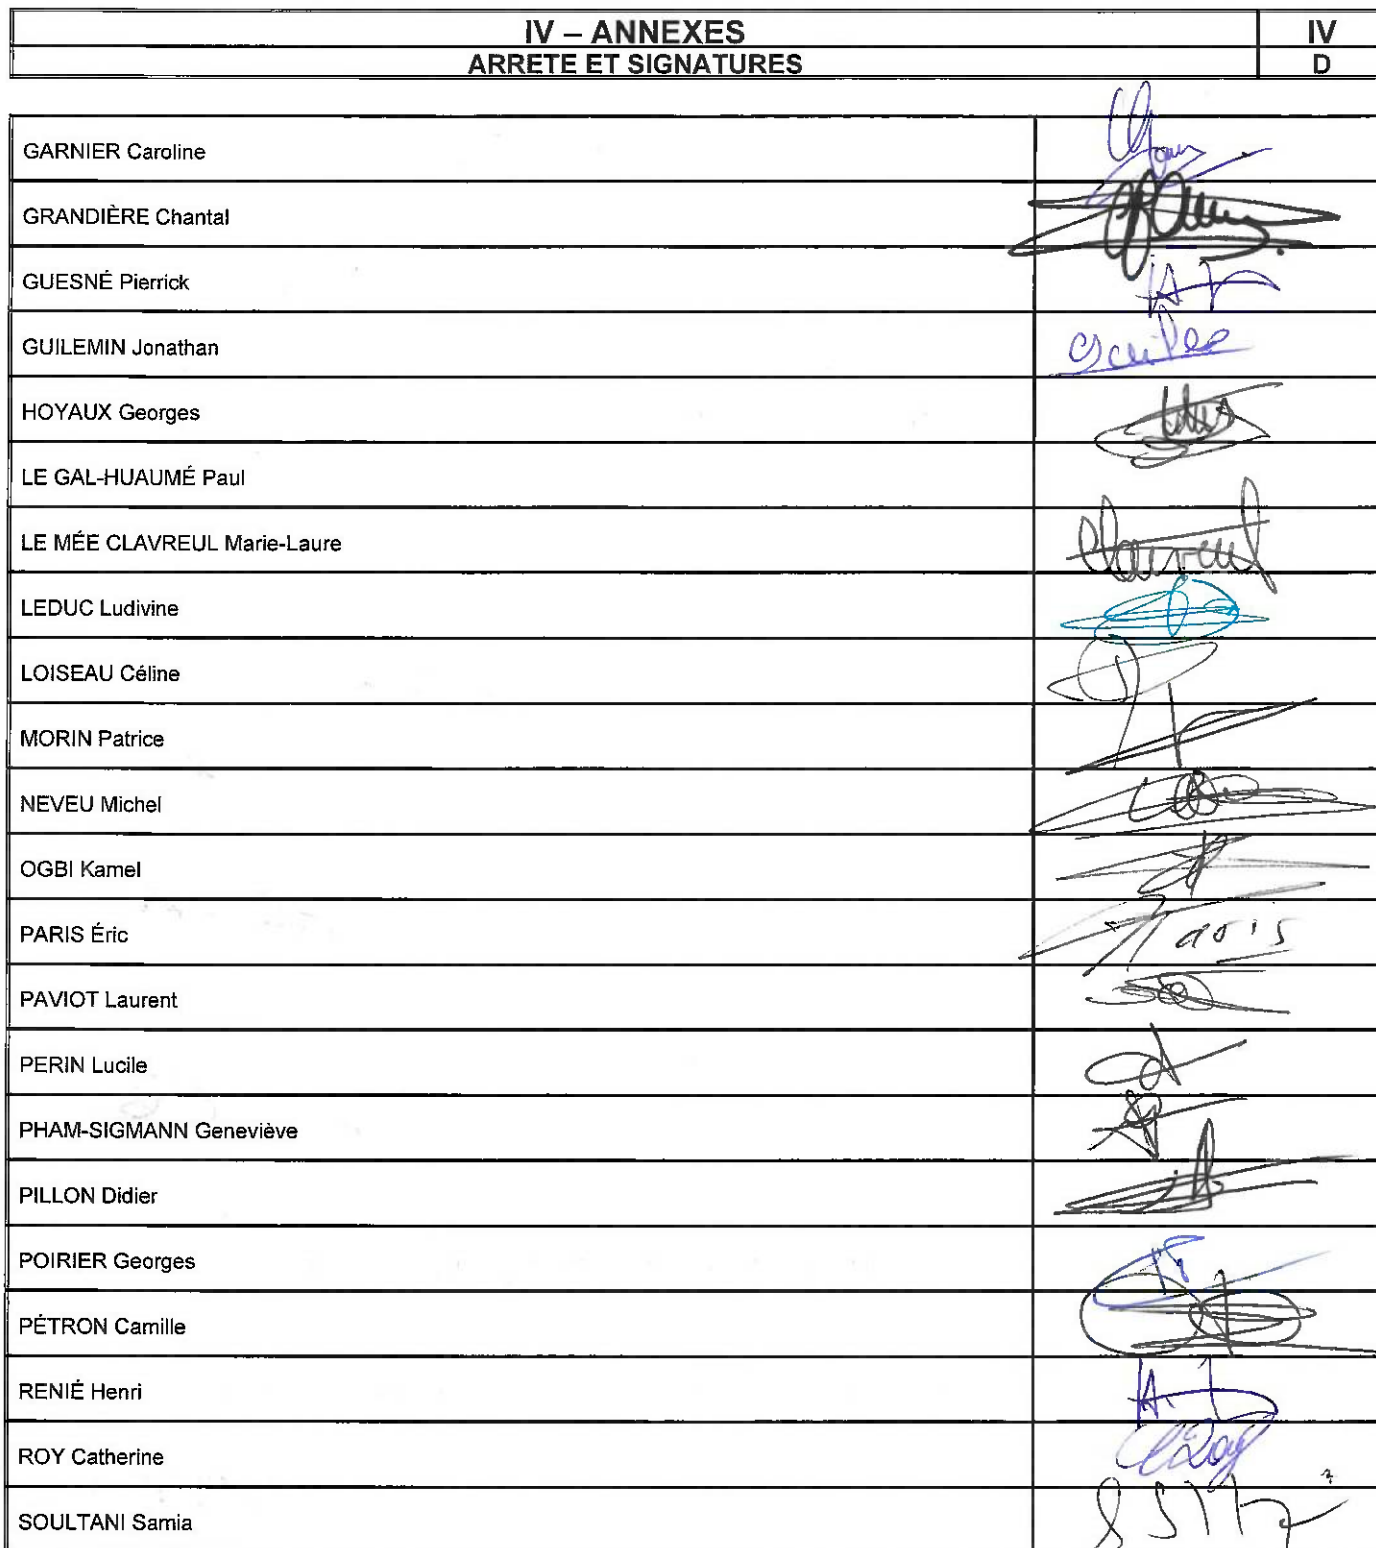 IV – ANNEXES IV
ARRETE ET SIGNATURES D
GARNIER Caroline
GRANDIÈRE Chantal
GUESNÉ Pierrick
GUILEMIN Jonathan
HOYAUX Georges
LE GAL-HUAUMÉ Paul
LE MÉE CLAVREUL Marie-Laure Clavreul
LEDUC Ludivine
LOISEAU Céline
MORIN Patrice
NEVEU Michel
OGBI Kamel
PARIS Éric Paris
PAVIOT Laurent
PERIN Lucile
PHAM-SIGMANN Geneviève
PILLON Didier
POIRIER Georges
PÉTRON Camille
RENIÉ Henri
ROY Catherine CRoy
SOULTANI Samia